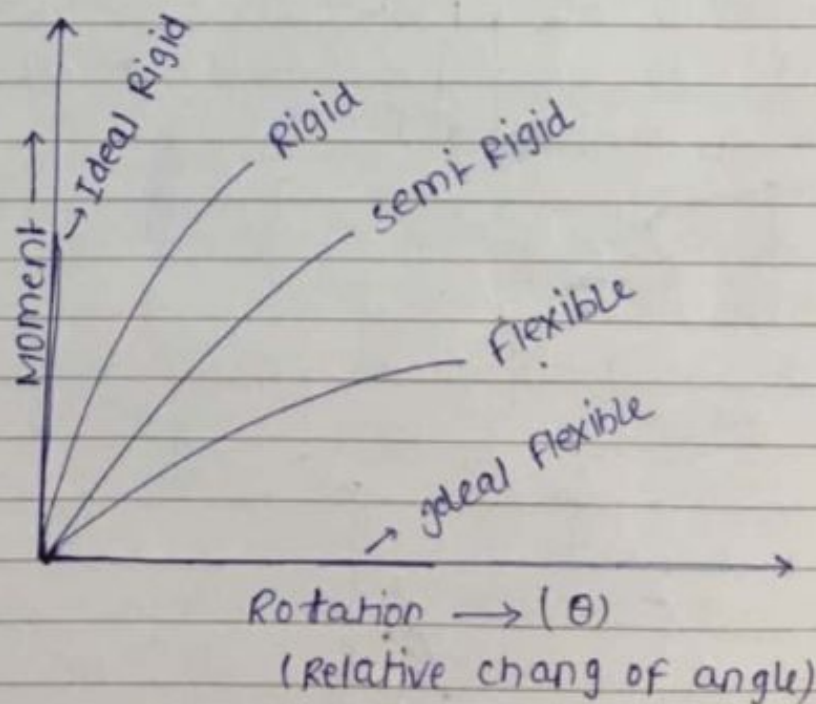 Ideal Rigid
Rigid
semi Rigid
Flexible
Ideal flexible
Moment
Rotation → (θ)
(Relative chang of angle)